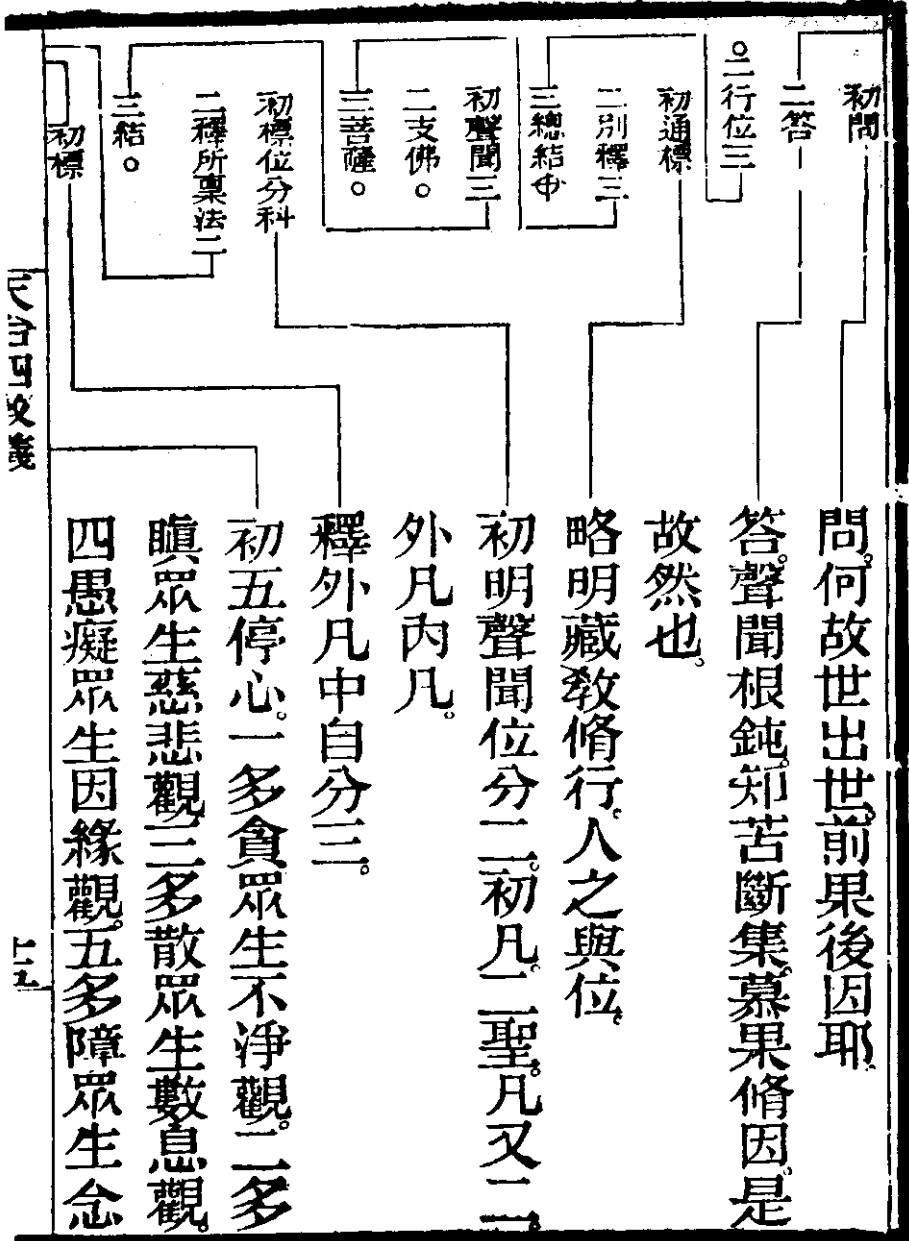 初問
二答
○二行位三
初通標
二別釋三
三總結中
初聲聞三
二支佛○
三菩薩○
初標位分科
二釋所稟法二
三結○
初標
問。何故世出世。前果後因耶。
答。聲聞根鈍。知苦斷集。慕果脩因。是
故然也。
略明藏教脩行。人之與位。
初明聲聞位分二。初凡。二聖。凡又二。
外凡內凡。
釋外凡中自分三。
初五停心。一多貪眾生不淨觀。二多
瞋眾生慈悲觀。三多散眾生數息觀。
四愚癡眾生因緣觀。五多障眾生念
天台四教儀
十五